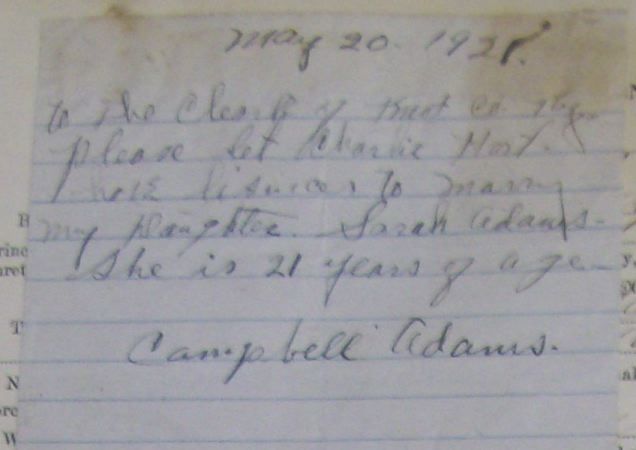 May 20. 1921.
to the Clerk of Knot Co. Ky.
please let Charlie Hart.
have lisences to marry
my Daughter. Sarah Adams.
She is 21 years of age
Campbell Adams.